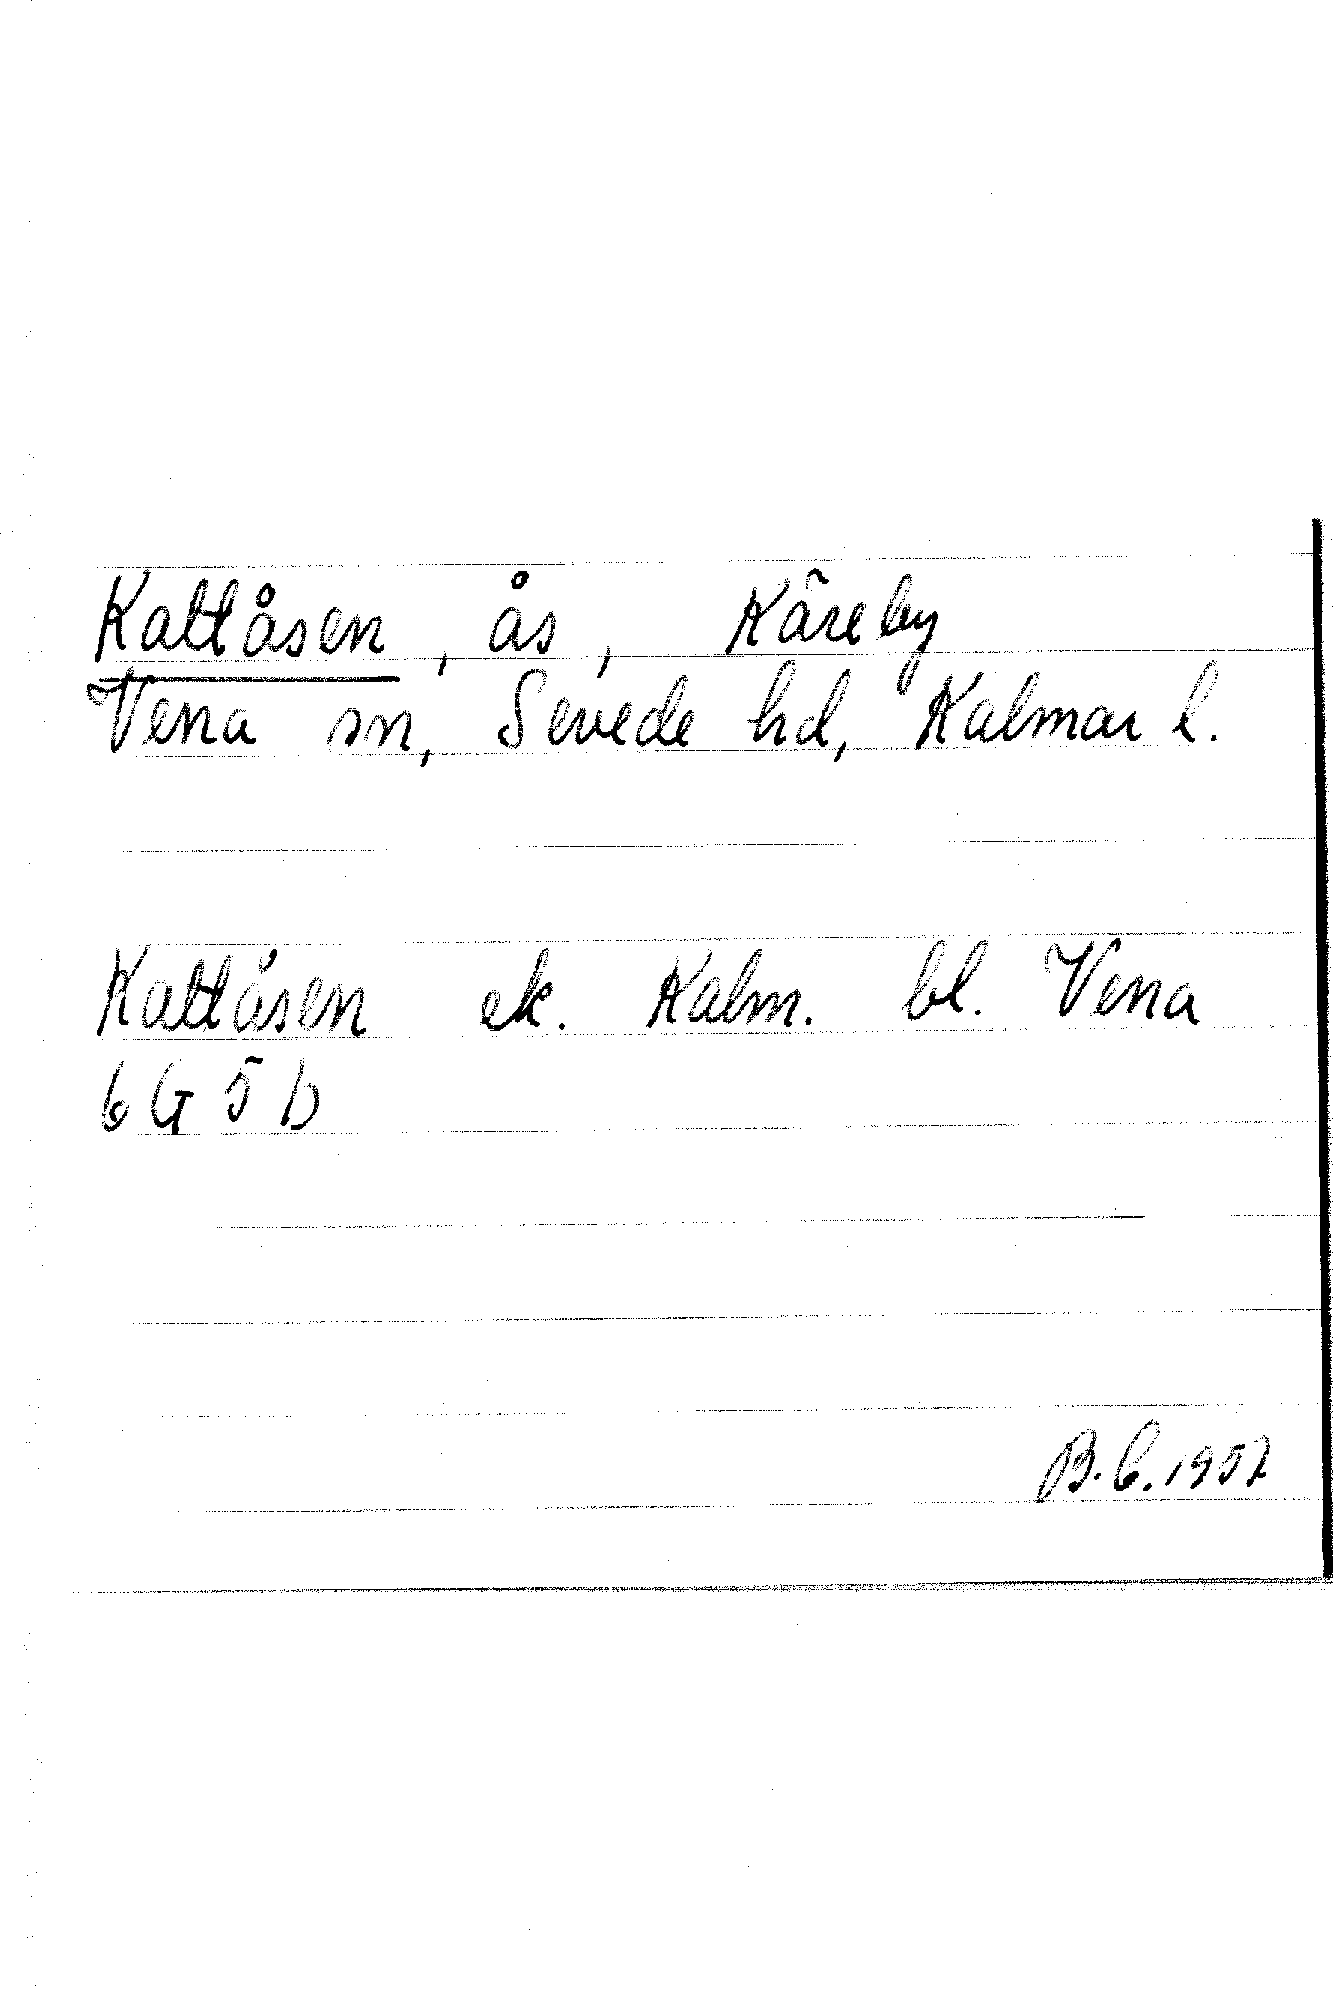 Kattåsen, ås, Käreby
Vena sn, Sevede hd, Kalmar l.
Kattåsen ek. Kalm. bl. Vena
6 G 5 b
B.C. 1957